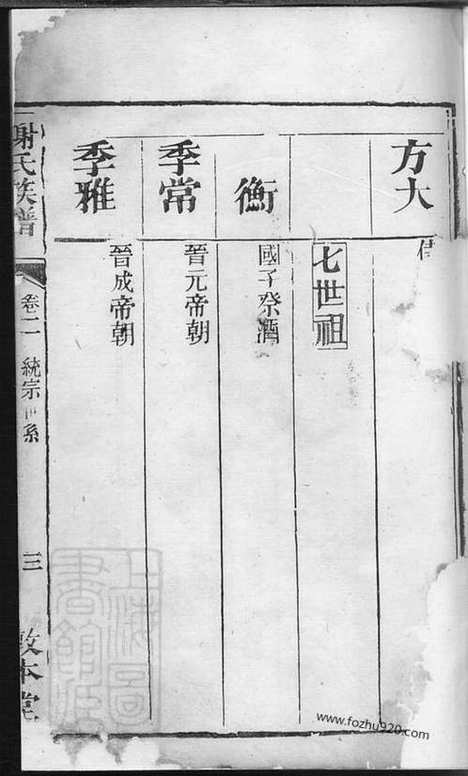 方大
七世祖
衡
國子祭酒
季常
晉元帝朝
季雅
晉成帝朝
謝氏族譜
卷二
統宗世系
三
敦本堂
www.fozhu920.com